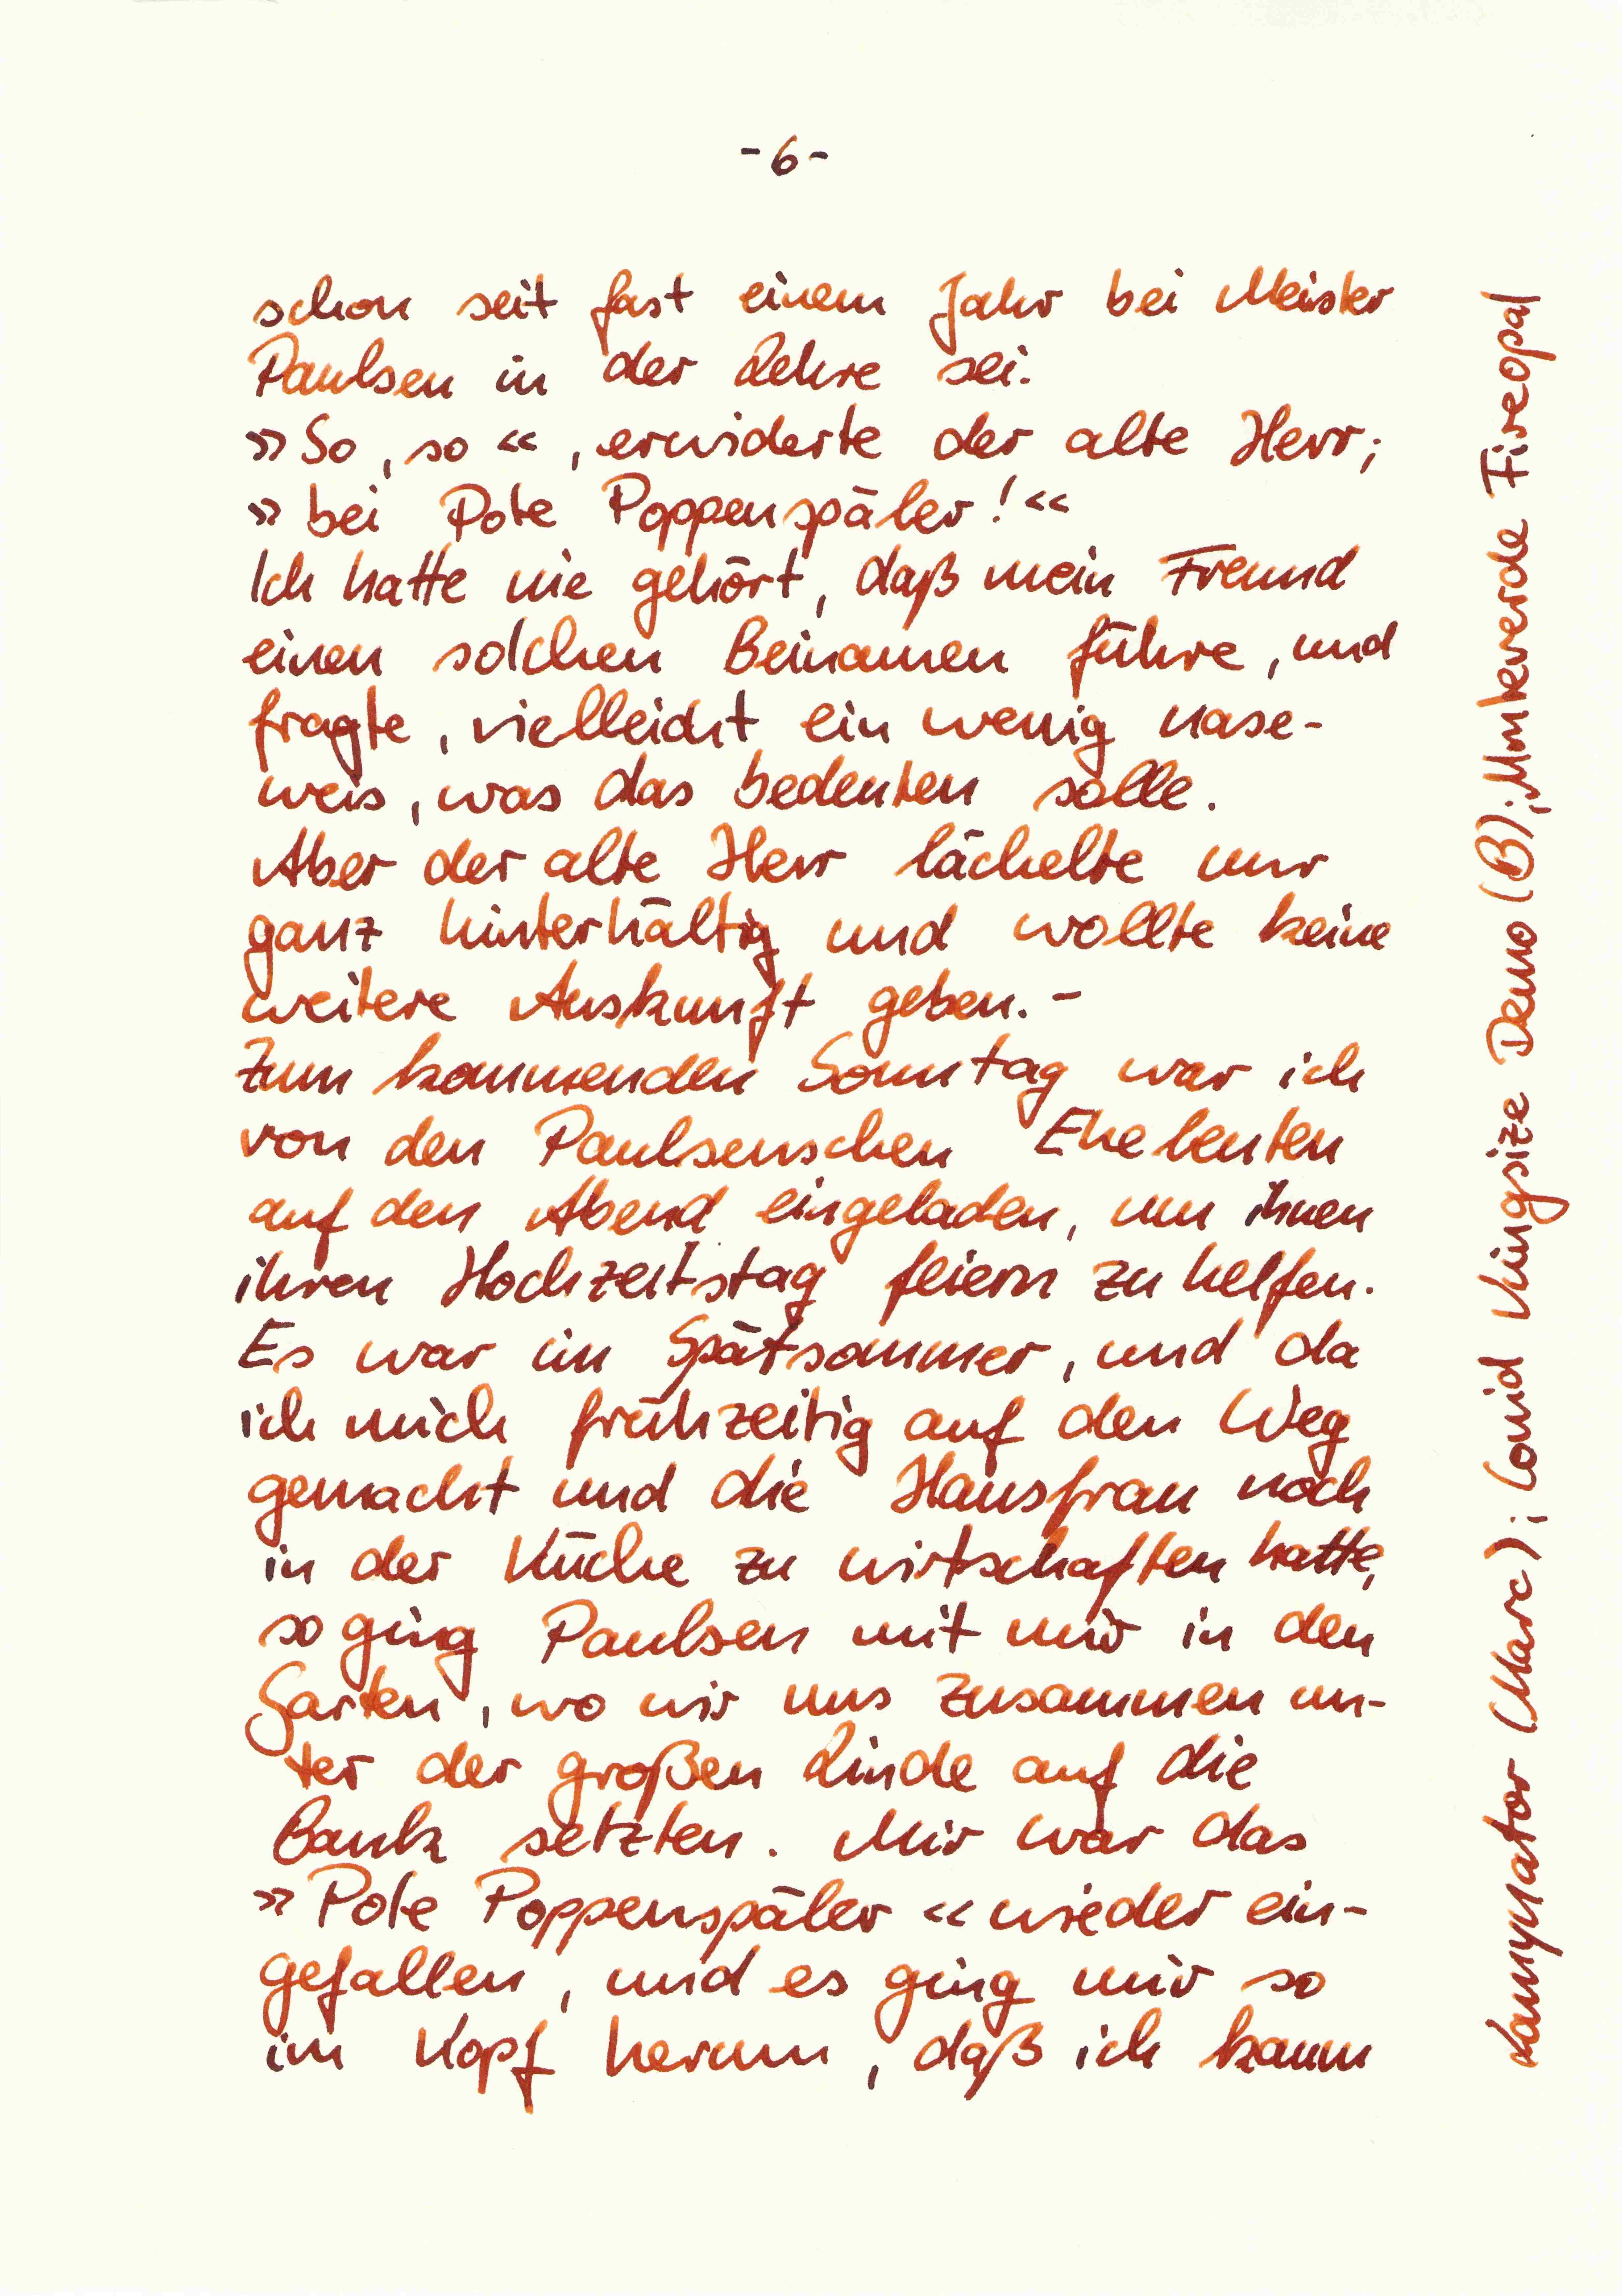 -6-
schon seit fast einem Jahr bei Meister
Paulsen in der Lehre sei.
»So, so«, erwiderte der alte Herr;
»bei Pole Poppenspäler!«
Ich hatte nie gehört, daß mein Freund
einen solchen Beinamen führe, und
fragte, vielleicht ein wenig nase-
weis, was das bedeuten solle.
Aber der alte Herr lächelte nur
ganz hinterhältig und wollte keine
weitere Auskunft geben. -
Zum kommenden Sonntag war ich
von den Paulsenschen Eheleuten
auf den Abend eingeladen, um ihnen
ihren Hochzeitstag feiern zu helfen.
Es war im Spätsommer, und da
ich mich frühzeitig auf den Weg
gemacht und die Hausfrau noch
in der Küche zu wirtschaften hatte,
so ging Paulsen mit mir in den
Garten, wo wir uns zusammen un-
ter der großen Linde auf die
Bank setzten. Mir war das
»Pole Poppenspäler« wieder ein-
gefallen, und es ging mir so
im Kopf herum, daß ich kaum
(Marc); Conid Kingsize Demo (B); Monteverde Fireopal